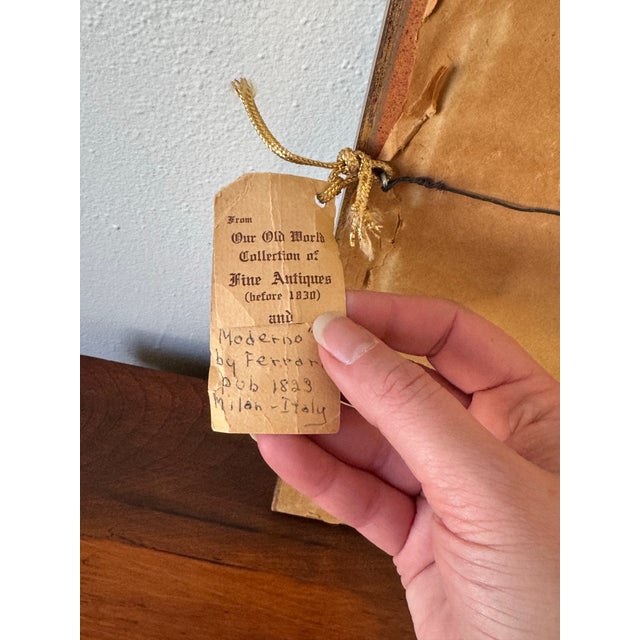 From
Our Old World
Collection of
Fine Antiques
(before 1830)
and
Moderno
by Ferrar
pub 1823
Milan-Italy